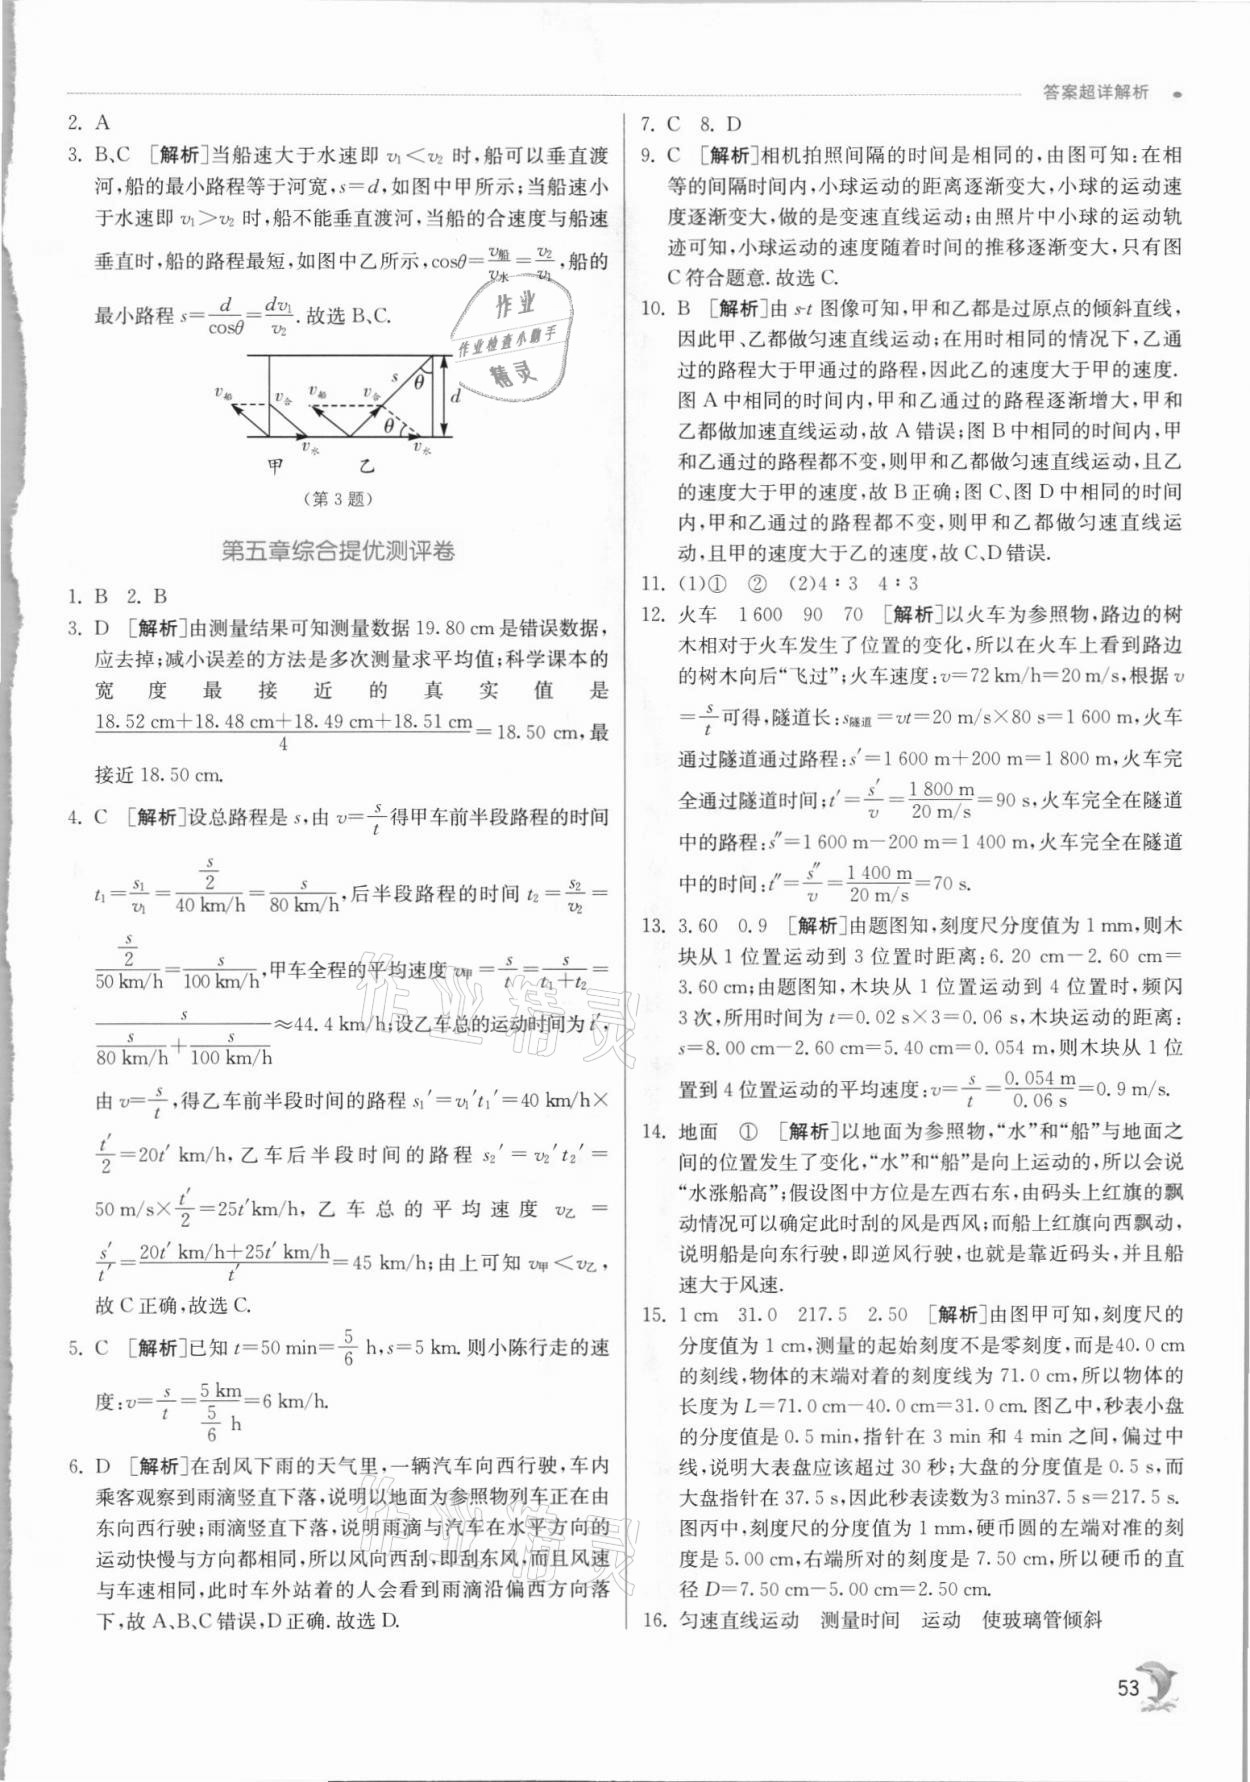 答案超详解析
2. A
3. B、C [解析]当船速大于水速即 v₁<v₂ 时,船可以垂直渡
河,船的最小路程等于河宽,s=d,如图中甲所示;当船速小
于水速即 v₁>v₂ 时,船不能垂直渡河,当船的合速度与船速
垂直时,船的路程最短,如图中乙所示,cosθ=v船/v水=v₂/v₁,船的
最小路程 s=d/cosθ=dv₁/v₂.故选 B、C.
v船 v合 v船 v合 s θ d
θ
v水 v水
甲 乙
(第 3 题)
第五章综合提优测评卷
1. B 2. B
3. D [解析]由测量结果可知测量数据 19.80 cm 是错误数据,
应去掉;减小误差的方法是多次测量求平均值;科学课本的
宽度最接近的真实值是
(18.52 cm+18.48 cm+18.49 cm+18.51 cm)/4=18.50 cm,最
接近 18.50 cm.
4. C [解析]设总路程是 s,由 v=s/t得甲车前半段路程的时间
t₁=s₁/v₁=(s/2)/(40 km/h)=s/(80 km/h),后半段路程的时间 t₂=s₂/v₂=
(s/2)/(50 km/h)=s/(100 km/h),甲车全程的平均速度 v甲=s/t=s/(t₁+t₂)=
s/(s/(80 km/h)+s/(100 km/h))≈44.4 km/h;设乙车总的运动时间为 t′,
由 v=s/t,得乙车前半段时间的路程 s₁′=v₁′t₁′=40 km/h×
t′/2=20t′ km/h,乙车后半段时间的路程 s₂′=v₂′t₂′=
50 m/s×t′/2=25t′km/h,乙车总的平均速度 v乙=
s′/t′=(20t′ km/h+25t′ km/h)/t′=45 km/h;由上可知 v甲<v乙,
故 C 正确,故选 C.
5. C [解析]已知 t=50 min=5/6 h,s=5 km. 则小陈行走的速
度:v=s/t=(5 km)/(5/6 h)=6 km/h.
6. D [解析]在刮风下雨的天气里,一辆汽车向西行驶,车内
乘客观察到雨滴竖直下落,说明以地面为参照物列车正在由
东向西行驶;雨滴竖直下落,说明雨滴与汽车在水平方向的
运动快慢与方向都相同,所以风向西刮,即刮东风,而且风速
与车速相同,此时车外站着的人会看到雨滴沿偏西方向落
下,故 A、B、C 错误,D 正确.故选 D.
7. C 8. D
9. C [解析]相机拍照间隔的时间是相同的,由图可知:在相
等的间隔时间内,小球运动的距离逐渐变大,小球的运动速
度逐渐变大,做的是变速直线运动;由照片中小球的运动轨
迹可知,小球运动的速度随着时间的推移逐渐变大,只有图
C 符合题意.故选 C.
10. B [解析]由 s-t 图像可知,甲和乙都是过原点的倾斜直线,
因此甲、乙都做匀速直线运动;在用时相同的情况下,乙通
过的路程大于甲通过的路程,因此乙的速度大于甲的速度.
图 A 中相同的时间内,甲和乙通过的路程逐渐增大,甲和
乙都做加速直线运动,故 A 错误;图 B 中相同的时间内,甲
和乙通过的路程都不变,则甲和乙都做匀速直线运动,且乙
的速度大于甲的速度,故 B 正确;图 C、图 D 中相同的时间
内,甲和乙通过的路程都不变,则甲和乙都做匀速直线运
动,且甲的速度大于乙的速度,故 C、D 错误.
11. (1)① ② (2)4∶3 4∶3
12. 火车 1 600 90 70 [解析]以火车为参照物,路边的树
木相对于火车发生了位置的变化,所以在火车上看到路边
的树木向后“飞过”;火车速度:v=72 km/h=20 m/s,根据 v
=s/t可得,隧道长:s隧道=vt=20 m/s×80 s=1 600 m,火车
通过隧道通过路程:s′=1 600 m+200 m=1 800 m,火车完
全通过隧道时间:t′=s′/v=(1 800 m)/(20 m/s)=90 s,火车完全在隧道
中的路程:s″=1 600 m-200 m=1 400 m,火车完全在隧道
中的时间:t″=s″/v=(1 400 m)/(20 m/s)=70 s.
13. 3.60 0.9 [解析]由题图知,刻度尺分度值为 1 mm,则木
块从 1 位置运动到 3 位置时距离:6.20 cm-2.60 cm=
3.60 cm;由题图知,木块从 1 位置运动到 4 位置时,频闪
3 次,所用时间为 t=0.02 s×3=0.06 s,木块运动的距离:
s=8.00 cm-2.60 cm=5.40 cm=0.054 m,则木块从 1 位
置到 4 位置运动的平均速度:v=s/t=(0.054 m)/(0.06 s)=0.9 m/s.
14. 地面 ① [解析]以地面为参照物,“水”和“船”与地面之
间的位置发生了变化,“水”和“船”是向上运动的,所以会说
“水涨船高”;假设图中方位是左西右东,由码头上红旗的飘
动情况可以确定此时刮的风是西风;而船上红旗向西飘动,
说明船是向东行驶,即逆风行驶,也就是靠近码头,并且船
速大于风速.
15. 1 cm 31.0 217.5 2.50 [解析]由图甲可知,刻度尺的
分度值为 1 cm,测量的起始刻度不是零刻度,而是40.0 cm
的刻线,物体的末端对着的刻度线为 71.0 cm,所以物体的
长度为 L=71.0 cm-40.0 cm=31.0 cm. 图乙中,秒表小盘
的分度值是 0.5 min,指针在 3 min 和 4 min 之间,偏过中
线,说明大表盘应该超过 30 秒;大盘的分度值是 0.5 s,而
大盘指针在 37.5 s,因此秒表读数为3 min37.5 s=217.5 s.
图丙中,刻度尺的分度值为 1 mm,硬币圆的左端对准的刻
度是 5.00 cm,右端所对的刻度是 7.50 cm,所以硬币的直
径 D=7.50 cm-5.00 cm=2.50 cm.
16. 匀速直线运动 测量时间 运动 使玻璃管倾斜
53
作业
作业检查小助手
精灵
作业精灵
作业精灵